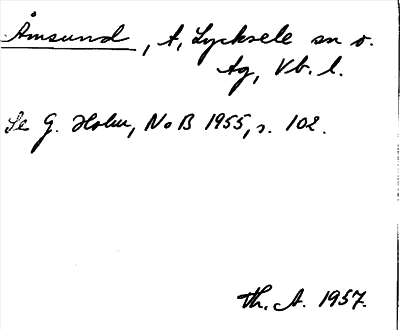 Åmsund, t, Lycksele sn o.
tg, Vb. l.
Se G. Holm, NoB 1955, s. 102.
Th. A. 1957.